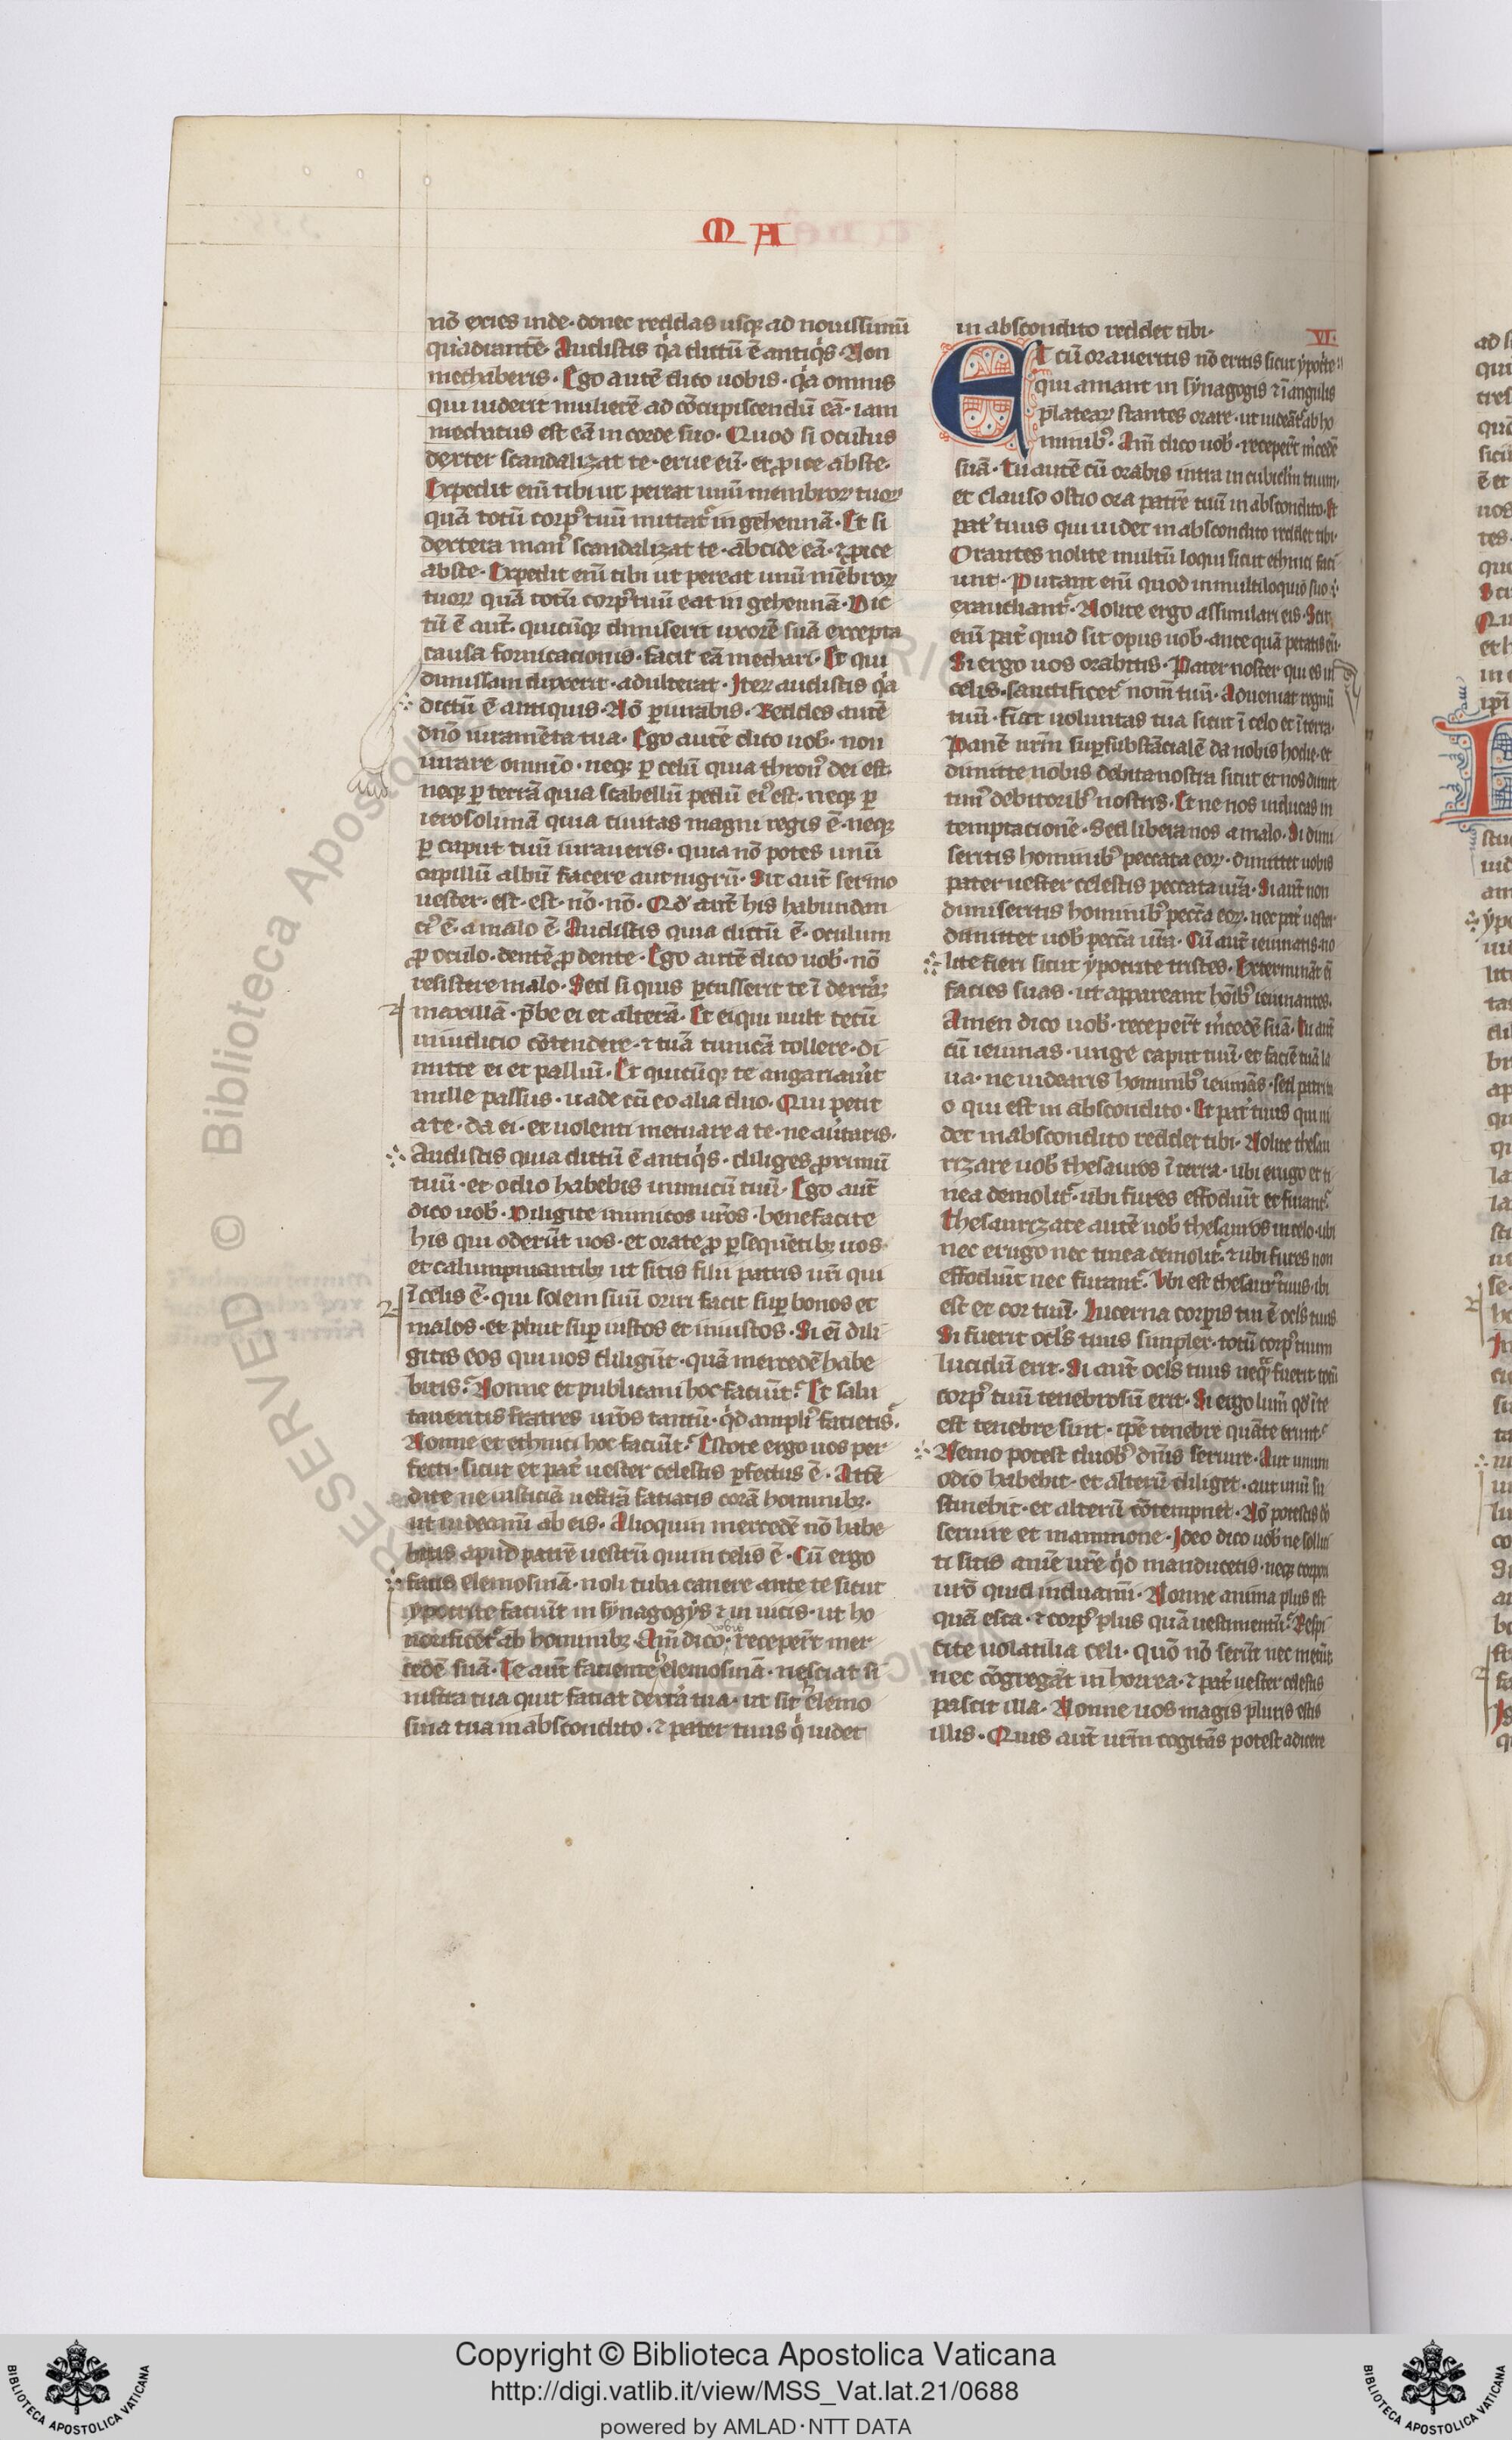 M A
nō exies inde· donec reddas usq; ad nouissimū
quadrantē· Audistis qͥa dictū ē antiqͥs· Non
mechaberis· Ego autē dico uobis· qͥa omnis
qui uiderit mulierē ad cōcupiscendū eā· iam
mechatus est eā in corde suo· Quod si oculus
dexter scandalizat te· erue eū· et ꝓice abste·
Expedit enī tibi ut pereat unū membroꝝ tuoꝝ
quā totū corpꝰ tuū mittatᷣ in gehennā· Et si
dextera manꝰ scandalizat te· abcide eā· ⁊ ꝓice
abste· Expedit enī tibi ut pereat unū mēbroꝝ
tuoꝝ quā totū corpꝰ tuū eat in gehennā· Dic
tū ē aut̄· quicūq; dimiserit uxorē suā excepta
causa fornicacionis· facit eā mechari· Et qui
dimissam duxerit· adulterat· Iteꝝ audistis qͥa
dictū ē antiquis· Nō ꝑiurabis· Reddes autē
dn̄o iuramēta tua· Ego autē dico uob̄· non
iurare omnīo· neq; ꝑ celū quia thronꝰ dei est·
neq; ꝑ terrā quia scabellū pedū eiꝰ est· neq; ꝑ
ierosolimā quia ciuitas magni regis ē· neq;
ꝑ caput tuū iuraueris· quia nō potes unū
capillū albū facere aut nigrū· Sit aut̄ sermo
uester· est· est· nō· nō· Qd̄ aut̄ his habundan
ciꝰ ē· a malo ē· Audistis quia dictū ē· oculum
ꝓ oculo· dentē ꝓ dente· Ego autē dico uob̄· nō
resistere malo· Sed si quis ꝑcusserit te ī dextrā
maxillā· p̄be ei et alterā· Et ei qui uult tecū
in iudicio cōtendere· ⁊ tuā tunicā tollere· di
mitte ei et palliū· Et quicūq; te angariau̓it
mille passus· uade cū eo alia duo· Qui petit
a te· da ei· et uolenti mutuare a te· ne au̓taris·
Audistis quia dictū ē antiqͥs· diliges ꝓximū
tuū· et odio habebis inimicū tuū· Ego aut̄
dico uob̄· Diligite inimicos ur̄os· benefacite
his qui oderūt uos· et orate ꝓ ꝑsequētib; uos·
et calumpniantib; ut sitis filii patris ur̄i qui
ī celis ē· qui solem suū oriri facit suꝑ bonos et
malos· et pluit suꝑ iustos et iniustos· Si eī dili
gitis eos qui uos diligūt· quā mercedē habe
bitis? Nonne et publicani hoc faciūt? Et si salu
taueritis fratres ur̄os tantū· qͥd ampliꝰ facietis?
Nonne et ethnici hoc faciūt? Estote ergo uos per
fecti· sicut et pat̓ uester celestis ꝑfectus ē· Attē
dite ne iusticiā uestrā faciatis corā hominib;·
ut uideamī ab eis· Alioquin mercedē nō habe
bitis apud patrē uestrū qui in celis ē· Cū ergo
facis elemosinā· noli tuba canere ante te sicut
ypocrite faciūt in synagogys ⁊ in uicis· ut ho
norificētᷣ ab hominib;· Am̄ dico uobis· receper̄t mer
cedē suā· Te aut̄ faciente elemosinā· nesciat si
nistra tua quit faciat dextrͣa tua· ut sit elemo
sina tua in abscondito· ⁊ pater tuus qͥ uidet
in abscondito reddet tibi·
VI·
ET cū oraueritis nō eritis sicut ypocrͥte
qui amant in synagogis ⁊ ī angulis
plateaꝝ stantes orare· ut uideātᷣ ab ho
minibꝰ· Am̄ dico uob̄· receper̄t m̓cedē
suā· Tu autē cū orabis intra in cubicl̄m tuum·
et clauso ostio ora patrē tuū in abscondito· Et
pat̓ tuus qui uidet in abscondito reddet tibi·
Orantes nolite multū loqui sicut ethnici faci
unt· Putant enī quod in multiloquio suo
exaudiantᷣ· Nolite ergo assimilari eis· Scit
enī pat̓ quid sit opus uob̄· ante quā petatis eū·
Si ergo uos orabitis· Pater noster qui es in
celis· sanctificetᷣ nom̄ tuū· Adueniat regnū
tuū· fiat uoluntas tua sicut ī celo et ī terra·
Panē nr̄m suꝑsubstācialē da nobis hodie· et
dimitte nobis debita nostra sicut et nos dimit
timꝰ debitoribꝰ nostris· Et ne nos inducas in
temptacionē· Sed libera nos a malo· Si dimi
seritis hominibꝰ peccata eoꝝ· dimittet uobis
pater uester celestis peccata ur̄a· Si aut̄ non
dimiseritis hominibꝰ pecc̄a eoꝝ· nec pat̓ uester
dimittet uob̄ pecc̄a ur̄a· Cū aut̄ ieiunatis· no
lite fieri sicut ypocrite tristes· Extermināt eī
facies suas· ut appareant hoībꝰ ieiunantes·
Amen dico uob̄· receper̄t m̓cedē suā· Tu aut̄
cū ieiunas· unge caput tuū· et faciē tuā la
ua· ne uidearis hominibꝰ ieiunās· sed patri tu
o qui est in abscondito· Et pat̓ tuus qui ui
det in abscondito reddet tibi· Nolite thesau
rizare uob̄ thesauros ī terra· ubi erugo et ti
nea demolitᷣ· ubi fures effodiūt et furantᷣ·
Thesaurizate autē uob̄ thesauros in celo· ubi
nec erugo nec tinea demolitᷣ· ⁊ ubi fures non
effodiūt nec furantᷣ· Vbi est thesaurꝰ tuus· ibi
est et cor tuū· Lucerna corꝑis tui ē ocl̄s tuus
Si fuerit ocl̄s tuus simplex· totū corpꝰ tuum
lucidū erit· Si aut̄ ocl̄s tuus neqͣ fuerit· totū
corpꝰ tuū tenebrosū erit· Si ergo lum̄ qd̄ ī te
est tenebre sunt· ip̄e tenebre quāte erunt?
Nemo potest duobꝰ dn̄is seruire· Aut unum
odio habebit· et alterū diliget· aut unū su
stinebit· et alterū cōtempnet· Nō potestis deo
seruire et mammone· Ideo dico uob̄ ne sollici
ti sitis anīe ur̄e qͥd manducetis· neq; corpori
ur̄o quid induamī· Nonne anima plus est
quā esca· ⁊ corpꝰ plus quā uestimentū? Respi
cite uolatilia celi· quō nō serūt nec metūt·
nec cōgregāt in horrea· ⁊ pat̓ uester celestis
pascit illa· Nonne uos magis pluris estis
illis· Quis aut̄ ur̄m cogitās potest adicere
Copyright © Biblioteca Apostolica Vaticana
http://digi.vatlib.it/view/MSS_Vat.lat.21/0688
powered by AMLAD·NTT DATA